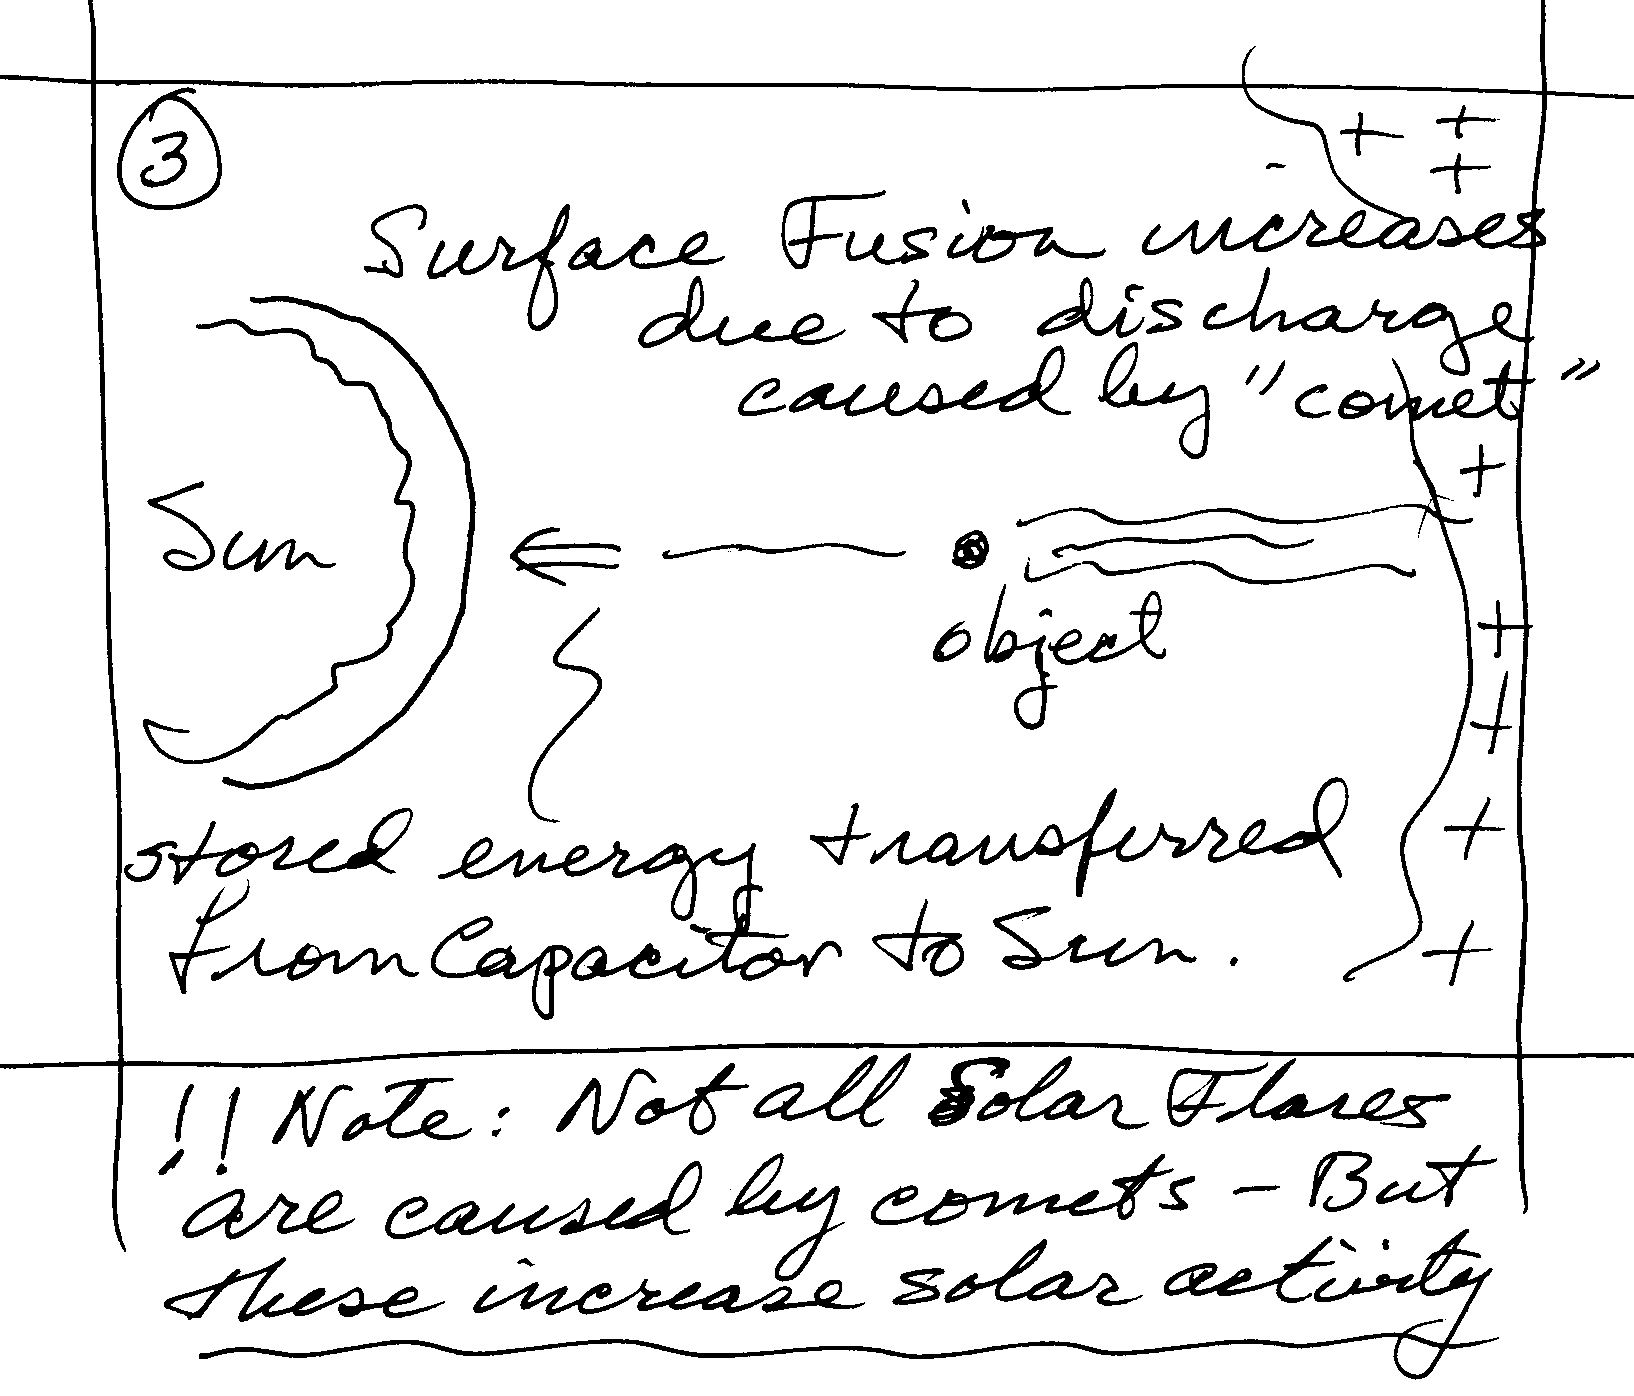 3
Surface Fusion increases
due to discharge
caused by "comet"
Sun
object
stored energy transferred
from Capacitor to Sun.
!! Note: Not all Solar Flares
are caused by comets - But
these increase solar activity